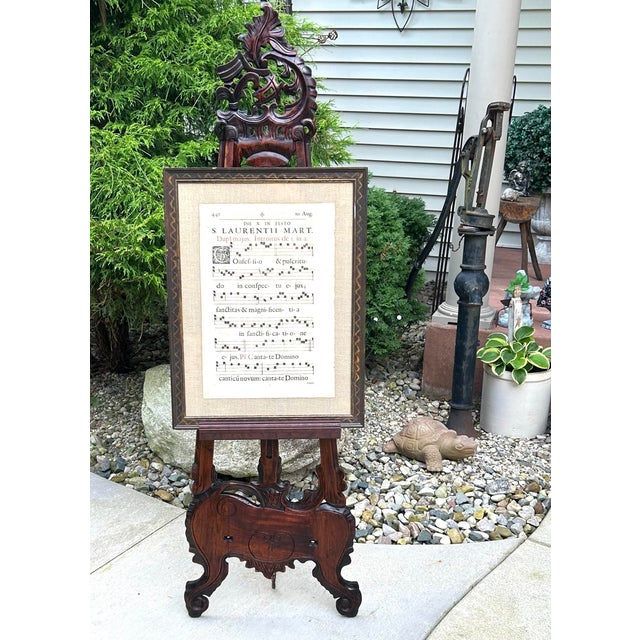 10 Aug.
DIE X. IN FESTO
S. LAURENTII MART.
Dupl. major. Introitus de 1. to 2.
COnfes-si-o & pulcritu
do in conspec-tu e-jus;
sanctitas & magnificen-ti-a
in sancti-fi-ca-ti-o-ne
e-jus. Ps. Canta-te Domino
canticū novum: canta-te Domino